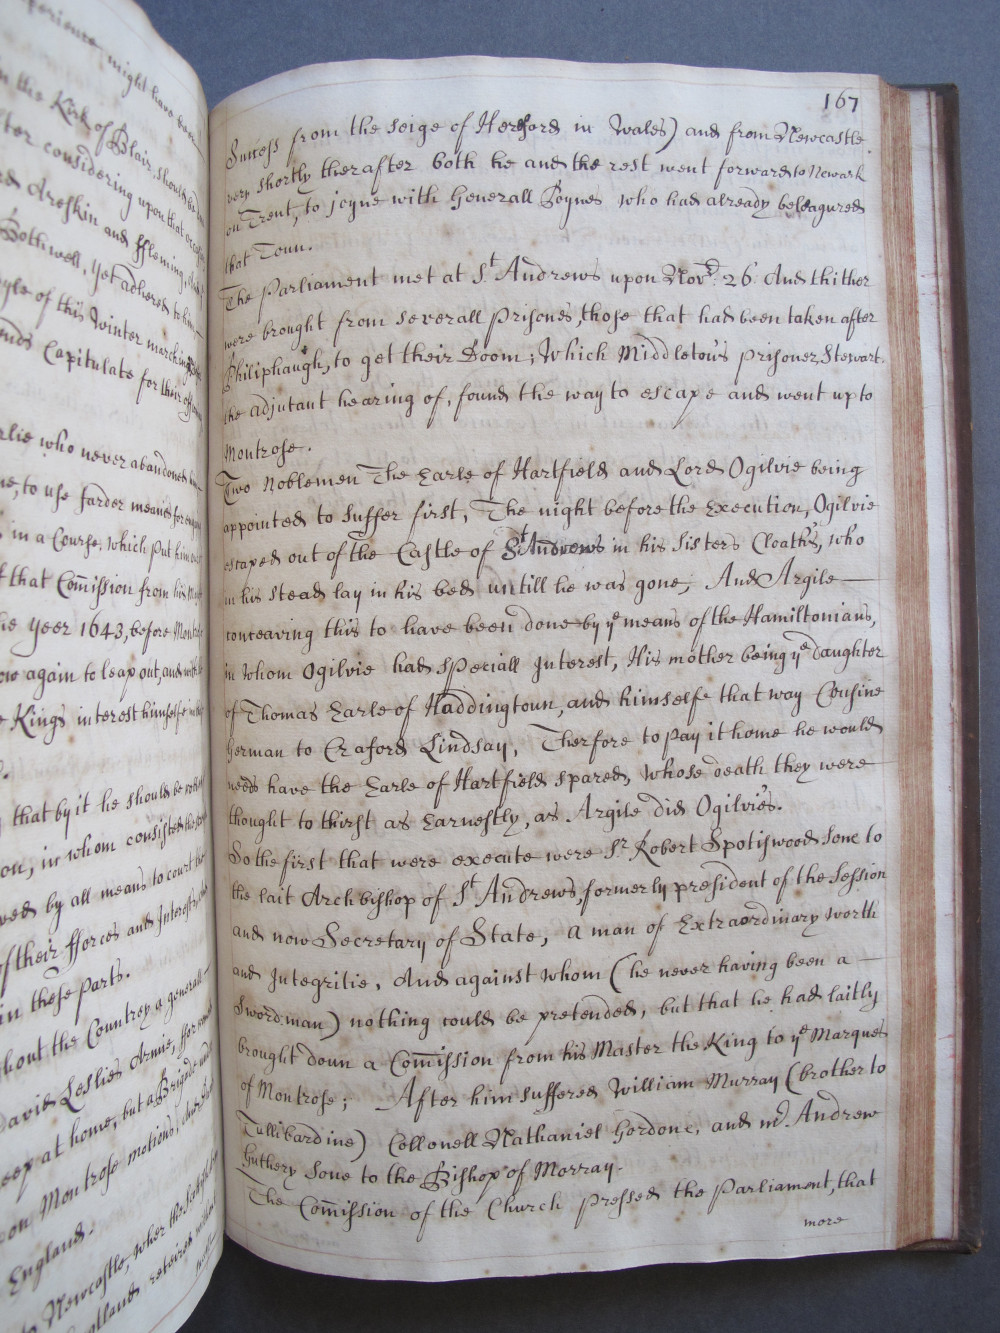 perience might have been
n the Kirk of Blair, should
ter considering upon that
rd Areskin and ffleming,
Bothwell, yet adhered to him
yle of this Winter marching
nds Capitulate for their
rlie who never abandoned
me, to use farder means for
in a Course, which put him
f that Com̄ission from his
he yeer 1643, before Mont
ow again to leap out, and with
e Kings interest himselfe
that by it he should be
on, in whom consisted the
ved by all means to court
of their fforces and Interests,
in these parts.
hout the Countrey a generall
David Leslies Armie,
eep at home, but a Brigade
on Montrose motions,
England.
to Newcastle, wher the
olland reteired
167
Success from the seige of Hereford in Wales) and from Newcastle.
very shortly therafter both he and the rest went forward to Newark
on Trent, to joyne with Generall Poynes who had already beleagured
that Toun.
The Parliament met at St Andrews upon Novr. 26 And thither
were brought from severall prisones, those that had been taken after
Philiphaugh, to get their Doom; Which Middletoūs prisoner, Stewart
the adjutant hearing of, found the way to escape and went up to
Montrose.
Two Noblemen The Earle of Hartfield and Lord Ogilvie being
appointed to suffer first, The night before the Execution, Ogilvie
escaped out of the Castle of St Andrews in his sisters Cloaths, who
in his stead lay in his bed untill he was gone; And Argile
conceaving this to have been done by ye means of the Hamiltonians,
in whom Ogilvie had speciall Interest, His mother being ye daughter
of Thomas Earle of Haddingtoun, and himselfe that way Cousine
German to Craford Lindsay, Therfore to pay it home he would
needs have the Earle of Hartfield spared, whose death they were
thought to thirst as Earnestly, as Argile did Ogilvies.
So the first that were execute were Sr. Robert Spotiswood sone to
the lait Archbishop of St Andrews, formerly president of the Session
and now Secretary of State, a man of Extraordinary worth
and Integritie, And against whom (he never having been a
Sword-man) nothing could be pretended, but that he had laitly
brought doun a Com̄ission from his Master the King to ye Marques
of Montrose; After him suffered William Murray (brother to
Tullibardine) Collonell Nathaniel Gordone, and mr. Andrew
Guthery sone to the Bishop of Morray.
The Com̄ission of the Church pressed the Parliament, that
more